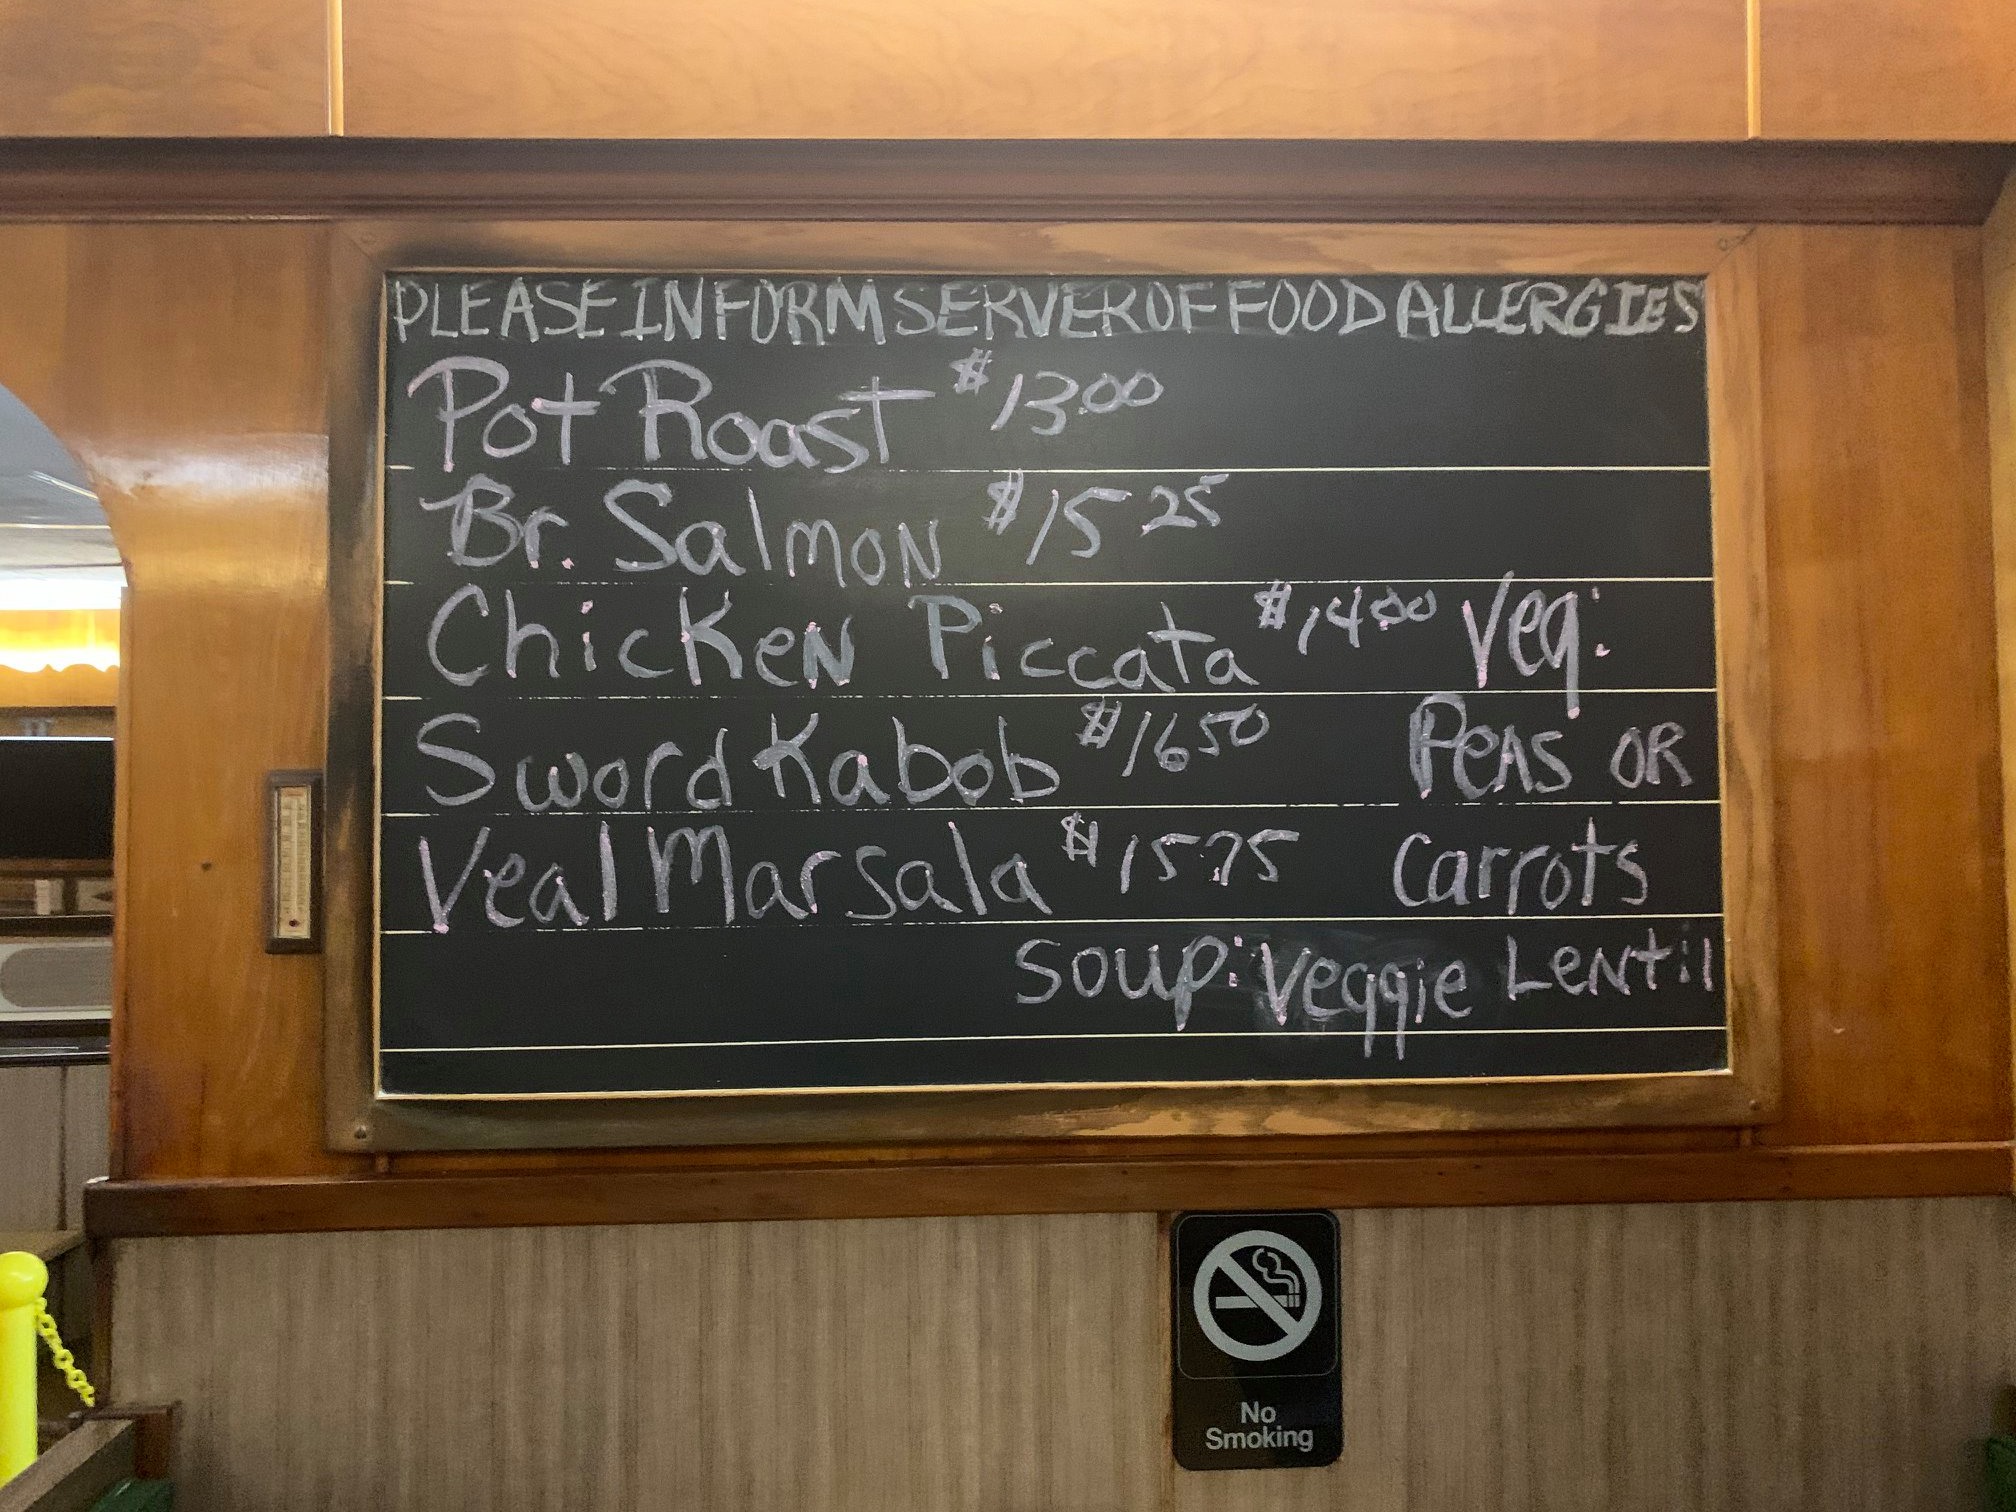 PLEASE INFORM SERVER OF FOOD ALLERGIES
Pot Roast $13.00
Br. Salmon $15 25
Chicken Piccata $14.00 Veg:
Sword Kabob $16 50 Peas or
Veal Marsala $15.75 Carrots
Soup: Veggie Lentil
No
Smoking